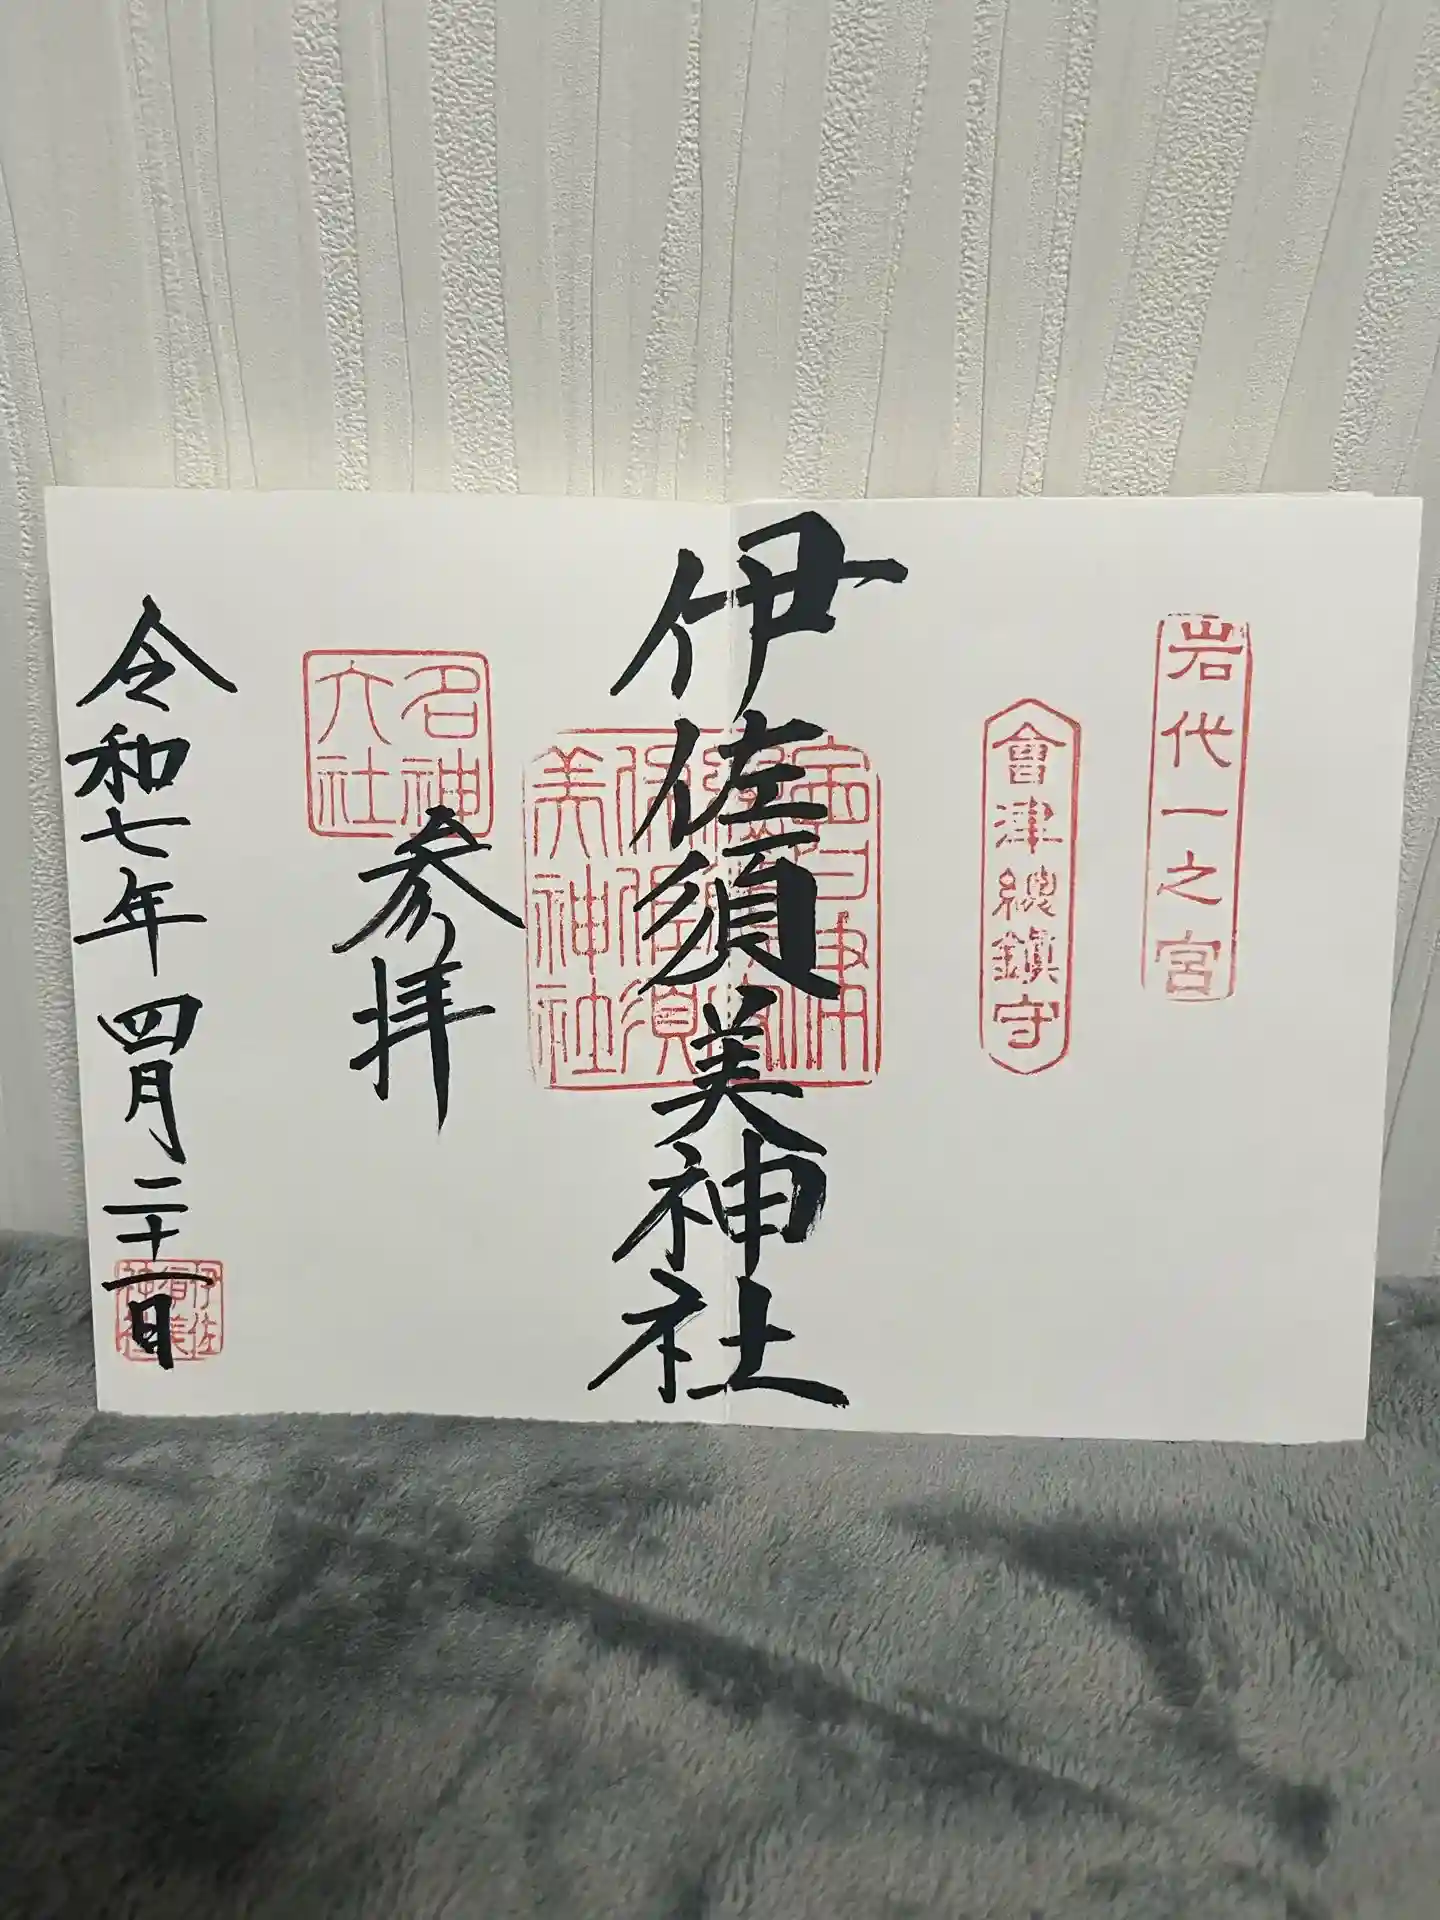 岩代一之宮
會津總鎮守
伊佐須美神社
美神社
名神
大社
参拝
令和七年四月二十一日
伊佐
須美
神社